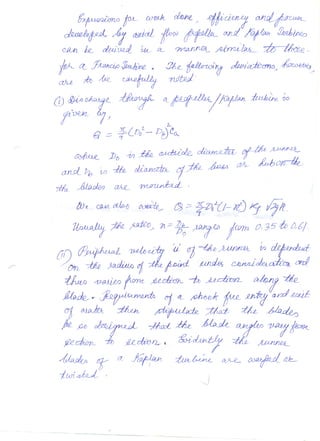 Expressions for work done, efficiency and power
developed by axial flow propeller and Kaplan Turbines
can be derived in a manner similar to those
for a Francis Turbine. The following deviations, however,
are to be carefully noted
(i) Discharge through a propeller/Kaplan turbine is
given by,
Q = π/4 (D₀² - D_b²) C_a
where D₀ is the outside diameter of the runner
and D_b is the diameter of the boss or hub on the
the blades are mounted.
We can also write, Q = π/4 D₀² (1-n²) K_f √2gH
Usually the ratio, n = D_b/D₀ ranges from 0.35 to 0.61
(ii) Peripheral velocity u of the runner is dependent
on the radius of the point under consideration and
thus varies from section to section along the
blade. Requirements of a shock free entry and exit
of water then stipulate that the blades
be so designed that the blade angles vary from
section to section. Evidently the runner
blades of a Kaplan turbine are warped or
twisted.